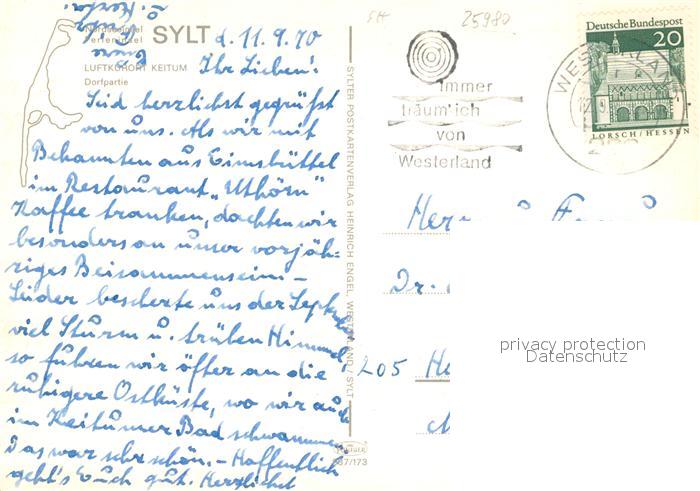 Nordseeinsel
Ferieninsel
SYLT
LUFTKURORT KEITUM
Dorfpartie
d. 11.9.70
Ihr Lieben!
Seid herzlichst gegrüßt
von uns. Als wir mit
Bekannten aus Eimsbüttel
im Restaurant „Uthörn"
Kaffee tranken, dachten wir
besonders an unser vorjäh-
riges Beisammensein. –
Leider bescherte uns der September
viel Sturm u. trüben Himmel,
so fuhren wir öfter an die
ruhigere Ostküste, wo wir auch
im Keitumer Bad schwammen.
Das war sehr schön. – Hoffentlich
geht's Euch gut. Herzlichst
Eure
u.
SYLTER POSTKARTENVERLAG HEINRICH ENGEL, WESTERLAND / SYLT
687/173
25980
immer
träum' ich
von
Westerland
WESTERLAND
Deutsche Bundespost
20
LORSCH/HESSEN
Dr.
205
privacy protection
Datenschutz